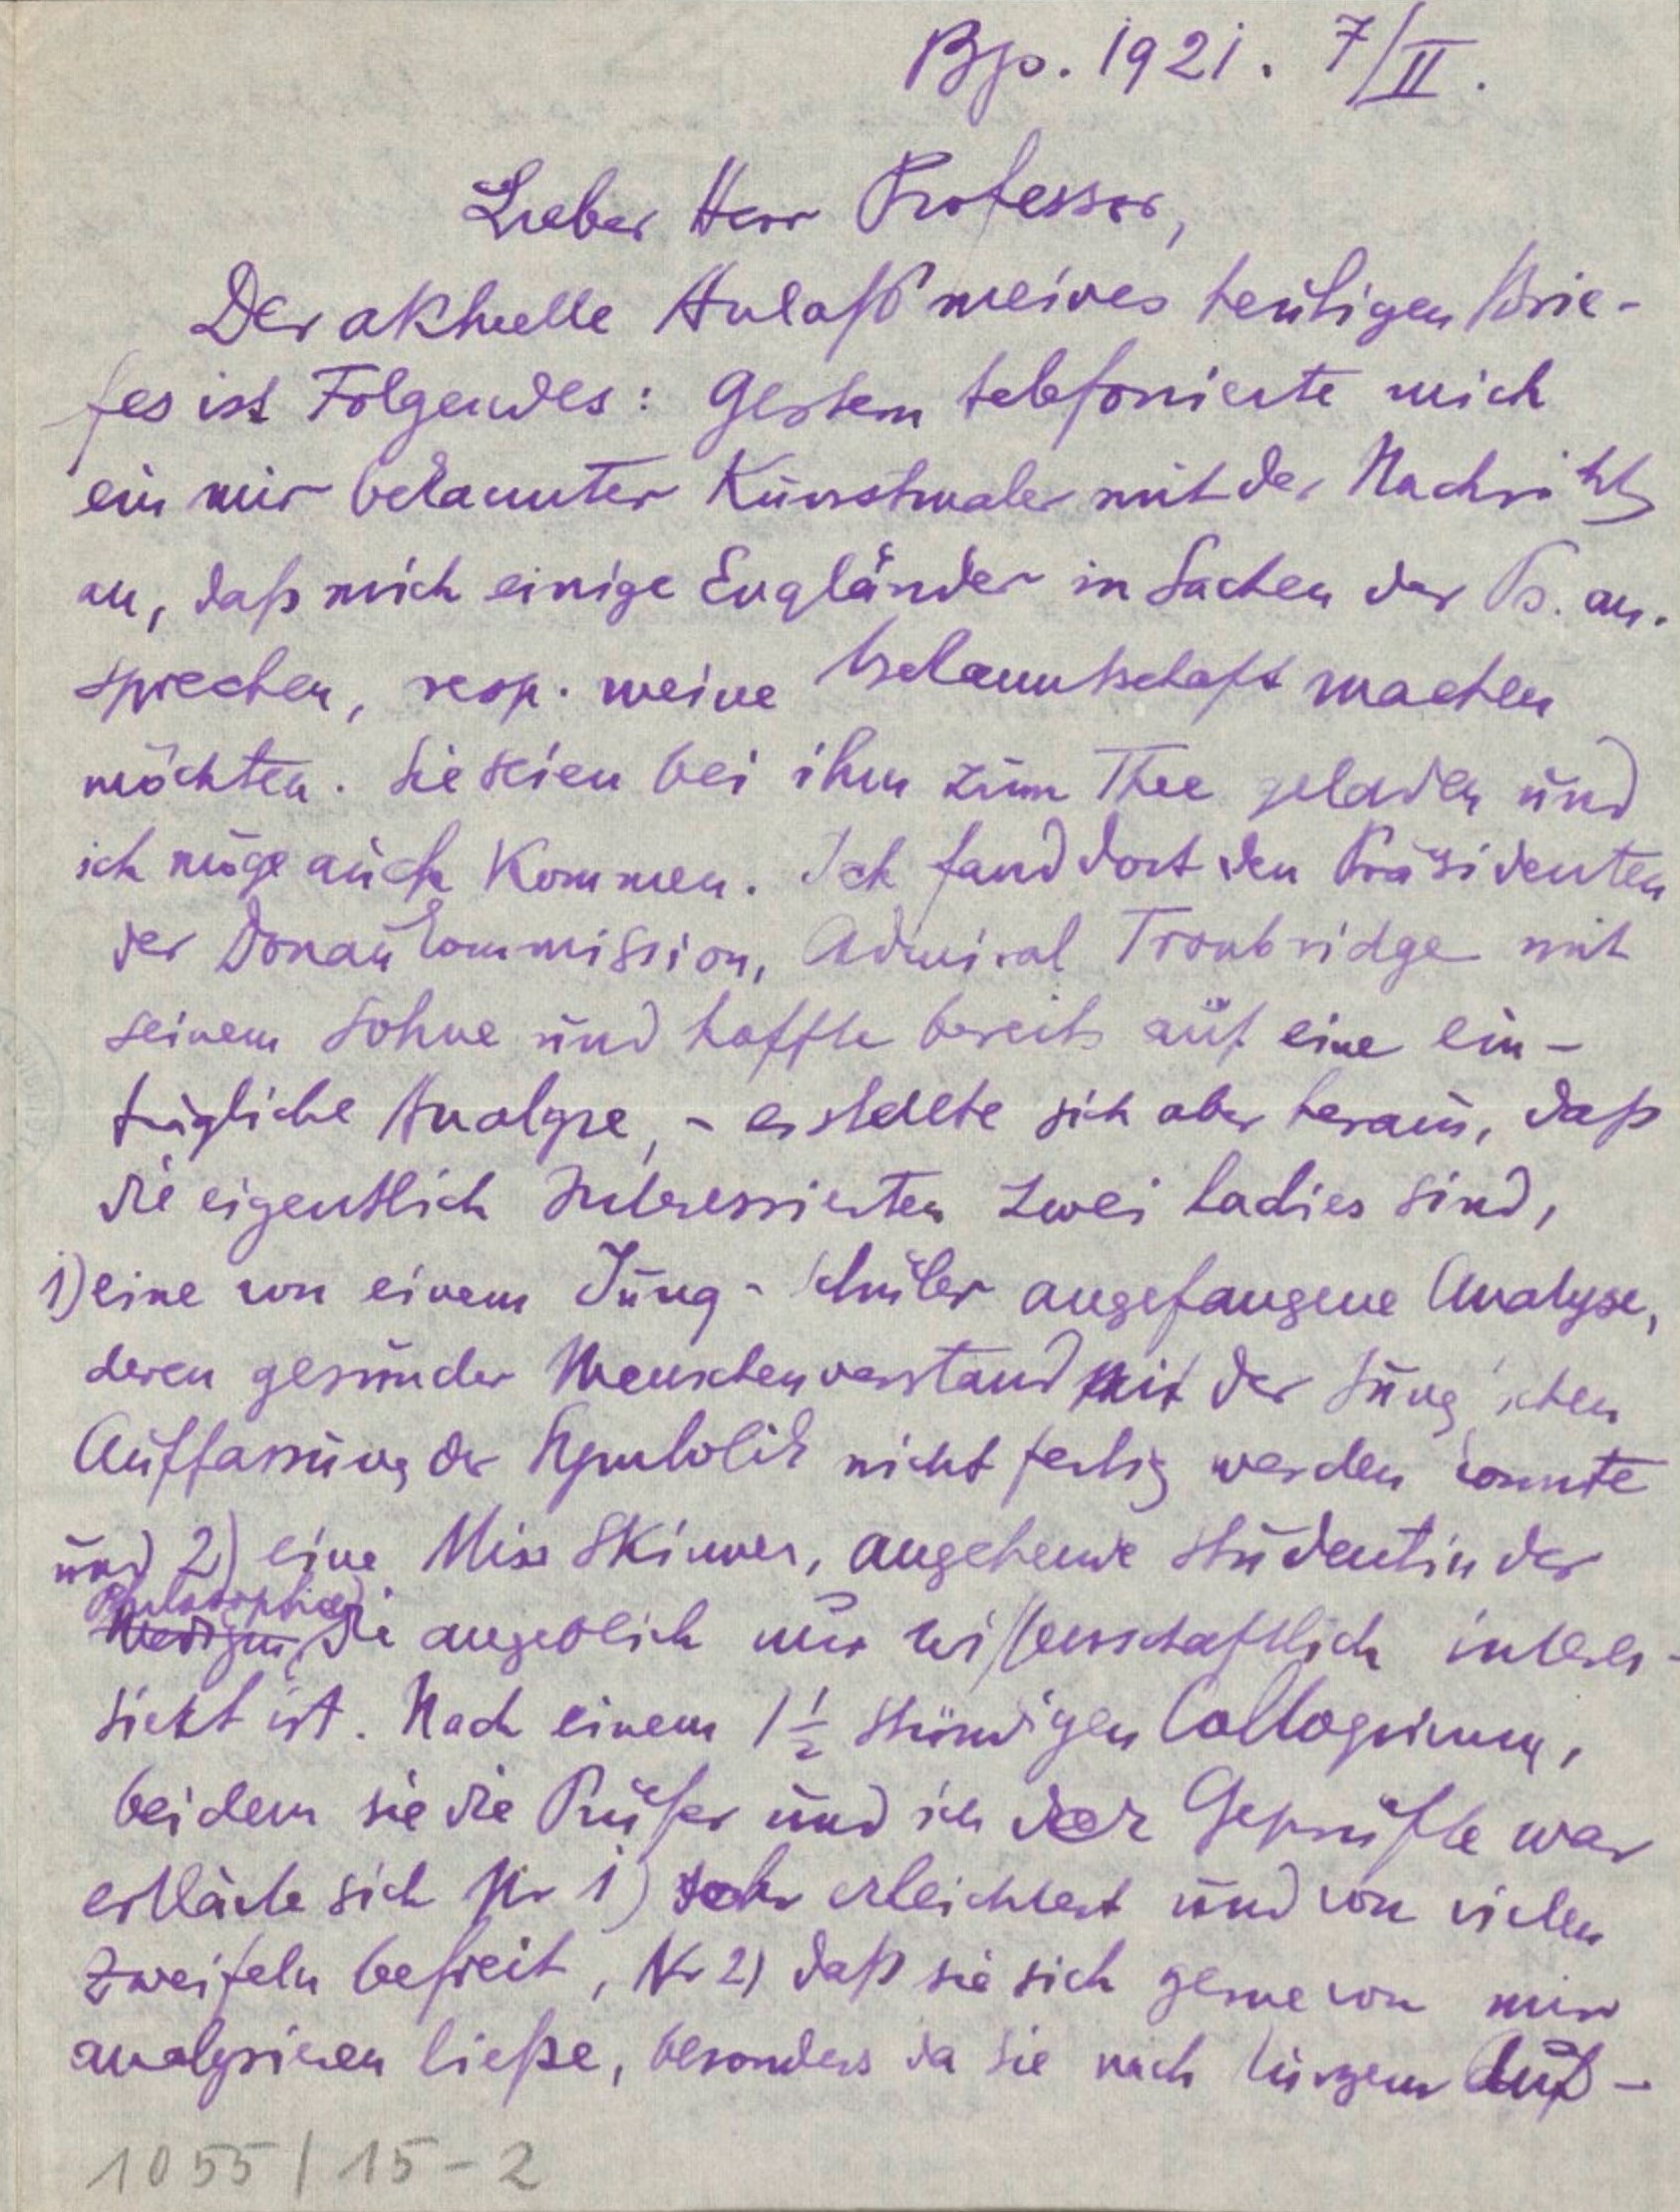 Bp. 1921. 7/II.
Lieber Herr Professor,
Der aktuelle Anlaß meines heutigen Brie-
fes ist Folgendes: Gestern telefonierte mich
ein mir bekannter Kunstmaler mit der Nachricht
an, daß mich einige Engländer in Sachen der Ps. an-
sprechen, resp. meine Bekanntschaft machen
möchten. Sie seien bei ihm zum Thee geladen und
ich möge auch kommen. Ich fand dort den Präsidenten
der Donaucommission, Admiral Troubridge mit
seinem Sohne und hoffte bereits auf eine ein-
trägliche Analyse, – es stellte sich aber heraus, daß
die eigentlich Interessierten zwei Ladies sind,
1) eine von einem Jung-Schüler angefangene Analyse,
deren gesunder Menschenverstand mit der Jung'schen
Auffassung der Symbolik nicht fertig werden konnte
und 2) eine Miss Skinner, angehende Studentin der
Philosophie
Medizin, die angeblich nur wissenschaftlich interes-
siert ist. Nach einem 1½ stündigen Colloquium,
bei dem sie die Prüfer und ich der Geprüfte war
erklärte sich Nr 1) sehr erleichtert und von vielen
Zweifeln befreit, Nr 2) daß sie sich gerne von mir
analysieren ließe, besonders da sie nach kurzem Auf-
1055/15-2